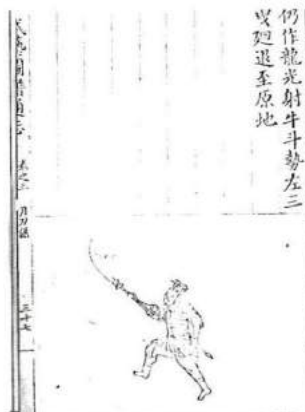 仍作龍光射牛斗勢左三
曳廻退至原地
武藝圖譜通志
卷之三
月刀譜
三十七